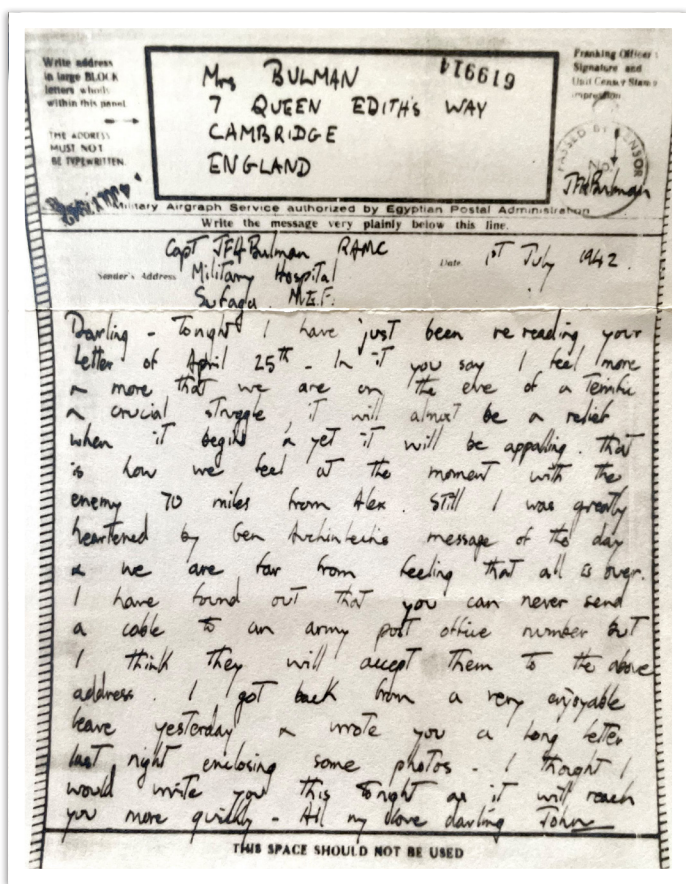 Write address
in large BLOCK
letters wholly
within this panel
THE ADDRESS
MUST NOT
BE TYPEWRITTEN.
Mrs BULMAN
7 QUEEN EDITH'S WAY
CAMBRIDGE
ENGLAND
619914
Franking Officer's
Signature and
Unit Censor Stamp
impression
PASSED BY CENSOR
No.
JFH Bulman
Military Airgraph Service authorized by Egyptian Postal Administration
Write the message very plainly below this line.
Sender's Address
Capt JFH Bulman RAMC
Military Hospital
Sufaga. M.E.F.
Date 1st July 1942.
Darling - Tonight I have just been re reading your
letter of April 25th - In it you say I feel more
& more that we are on the eve of a terrific
& crucial struggle, it will almost be a relief
when it begins & yet it will be appalling. That
is how we feel at the moment with the
enemy 70 miles from Alex. Still I was greatly
heartened by Gen Auchinlecks message of the day
& we are far from feeling that all is over.
I have found out that you can never send
a cable to an army post office number but
I think they will accept them to the above
address. I got back from a very enjoyable
leave yesterday & wrote you a long letter
last night enclosing some photos - I thought I
would write you this tonight as it will reach
you more quickly - All my love darling John
THIS SPACE SHOULD NOT BE USED